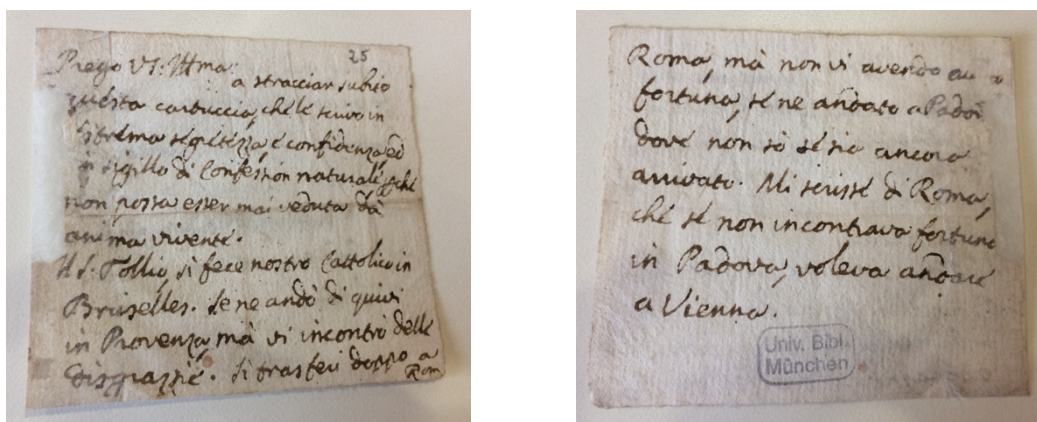 25
Prego VS: Illma
a stracciar subito
questa cartuccia, chè le scrivo in
estrema segretezza, e confidenza, ed
in sigillo di Confession naturale, chè
non possa esser mai veduta dà
anima vivente.
Il S. Tollio, si fece nostro Cattolico in
Bruselles. Se ne andò di quivi
in Provenza, mà vi incontrò delle
disgrazzie. Si trasferì doppo a
Rom
Roma, mà non vi avendo
fortuna, se ne andato a Padoa
dove non sò se sia ancora
arrivato. Mi scrisse di Roma,
chè se non incontrava fortuna
in Padova, voleva andare
a Vienna.
Univ. Bibl.
München